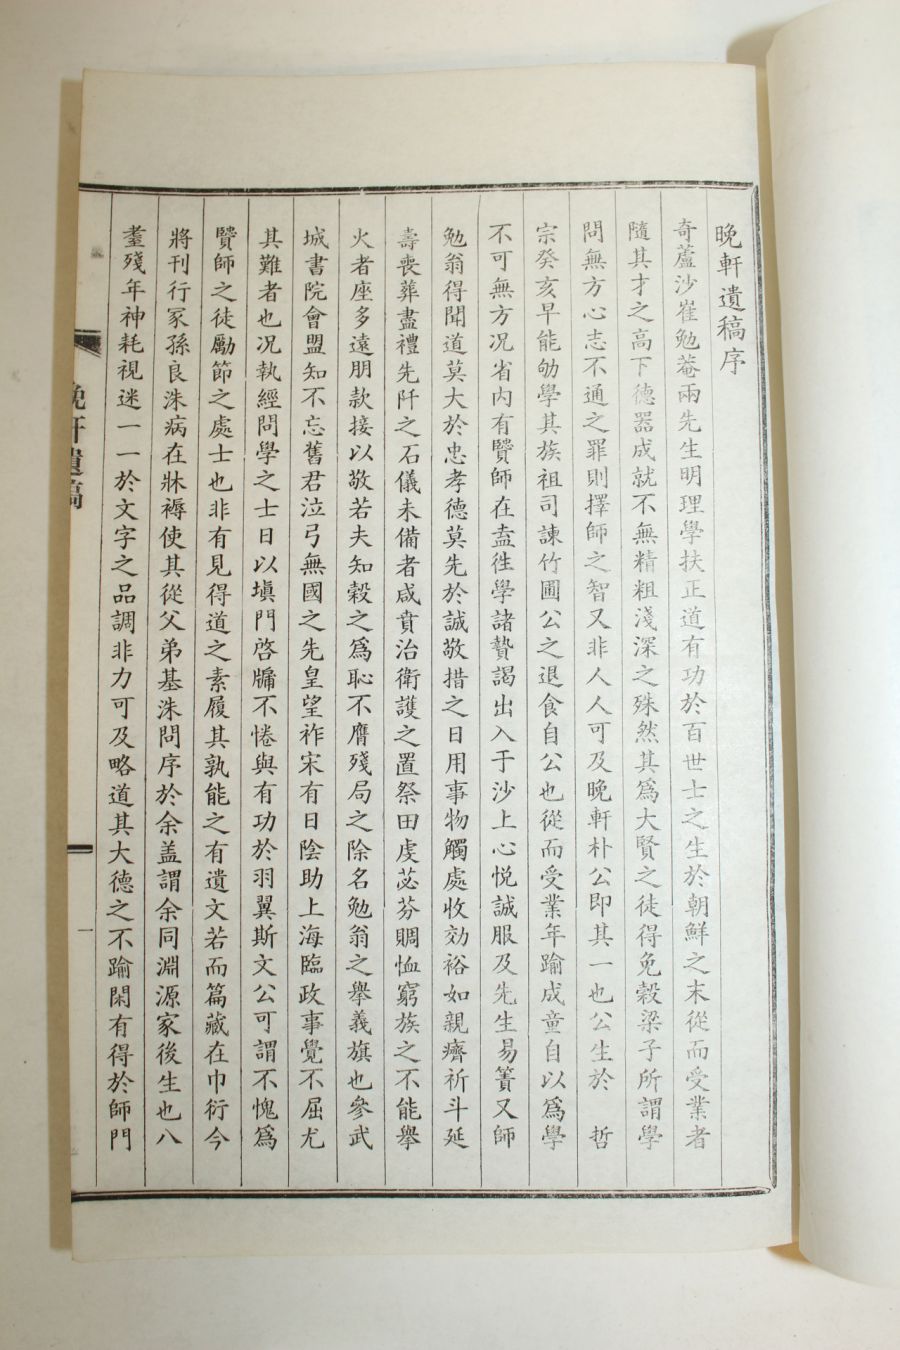 晚軒遺稿序
奇蘆沙崔勉菴兩先生明理學扶正道有功於百世士之生於朝鮮之末從而受業者
隨其才之高下德器成就不無精粗淺深之殊然其爲大賢之徒得免穀梁子所謂學
問無方心志不通之罪則擇師之智又非人人可及晚軒朴公即其一也公生於 哲
宗癸亥早能劬學其族祖司諫竹圃公之退食自公也從而受業年踰成童自以爲學
不可無方况省內有贒師在盍徃學諸贄謁出入于沙上心悅誠服及先生易簀又師
勉翁得聞道莫大於忠孝德莫先於誠敬措之日用事物觸處收効裕如親癠祈斗延
壽喪葬盡禮先阡之石儀未備者咸賁治衛護之置祭田虔苾芬賙恤窮族之不能擧
火者座多遠朋款接以敬若夫知穀之爲恥不膺殘局之除名勉翁之擧義旗也參武
城書院會盟知不忘舊君泣弓無國之先皇望祚宋有日陰助上海臨政事覺不屈尤
其難者也况執經問學之士日以塡門啓牖不惓與有功於羽翼斯文公可謂不愧爲
贒師之徒勵節之處士也非有見得道之素履其孰能之有遺文若而篇藏在巾衍今
將刊行冢孫良洙病在牀褥使其從父弟基洙問序於余盖謂余同淵源家後生也八
耋殘年神耗視迷一一於文字之品調非力可及略道其大德之不踰閑有得於師門
晚軒遺稿
一